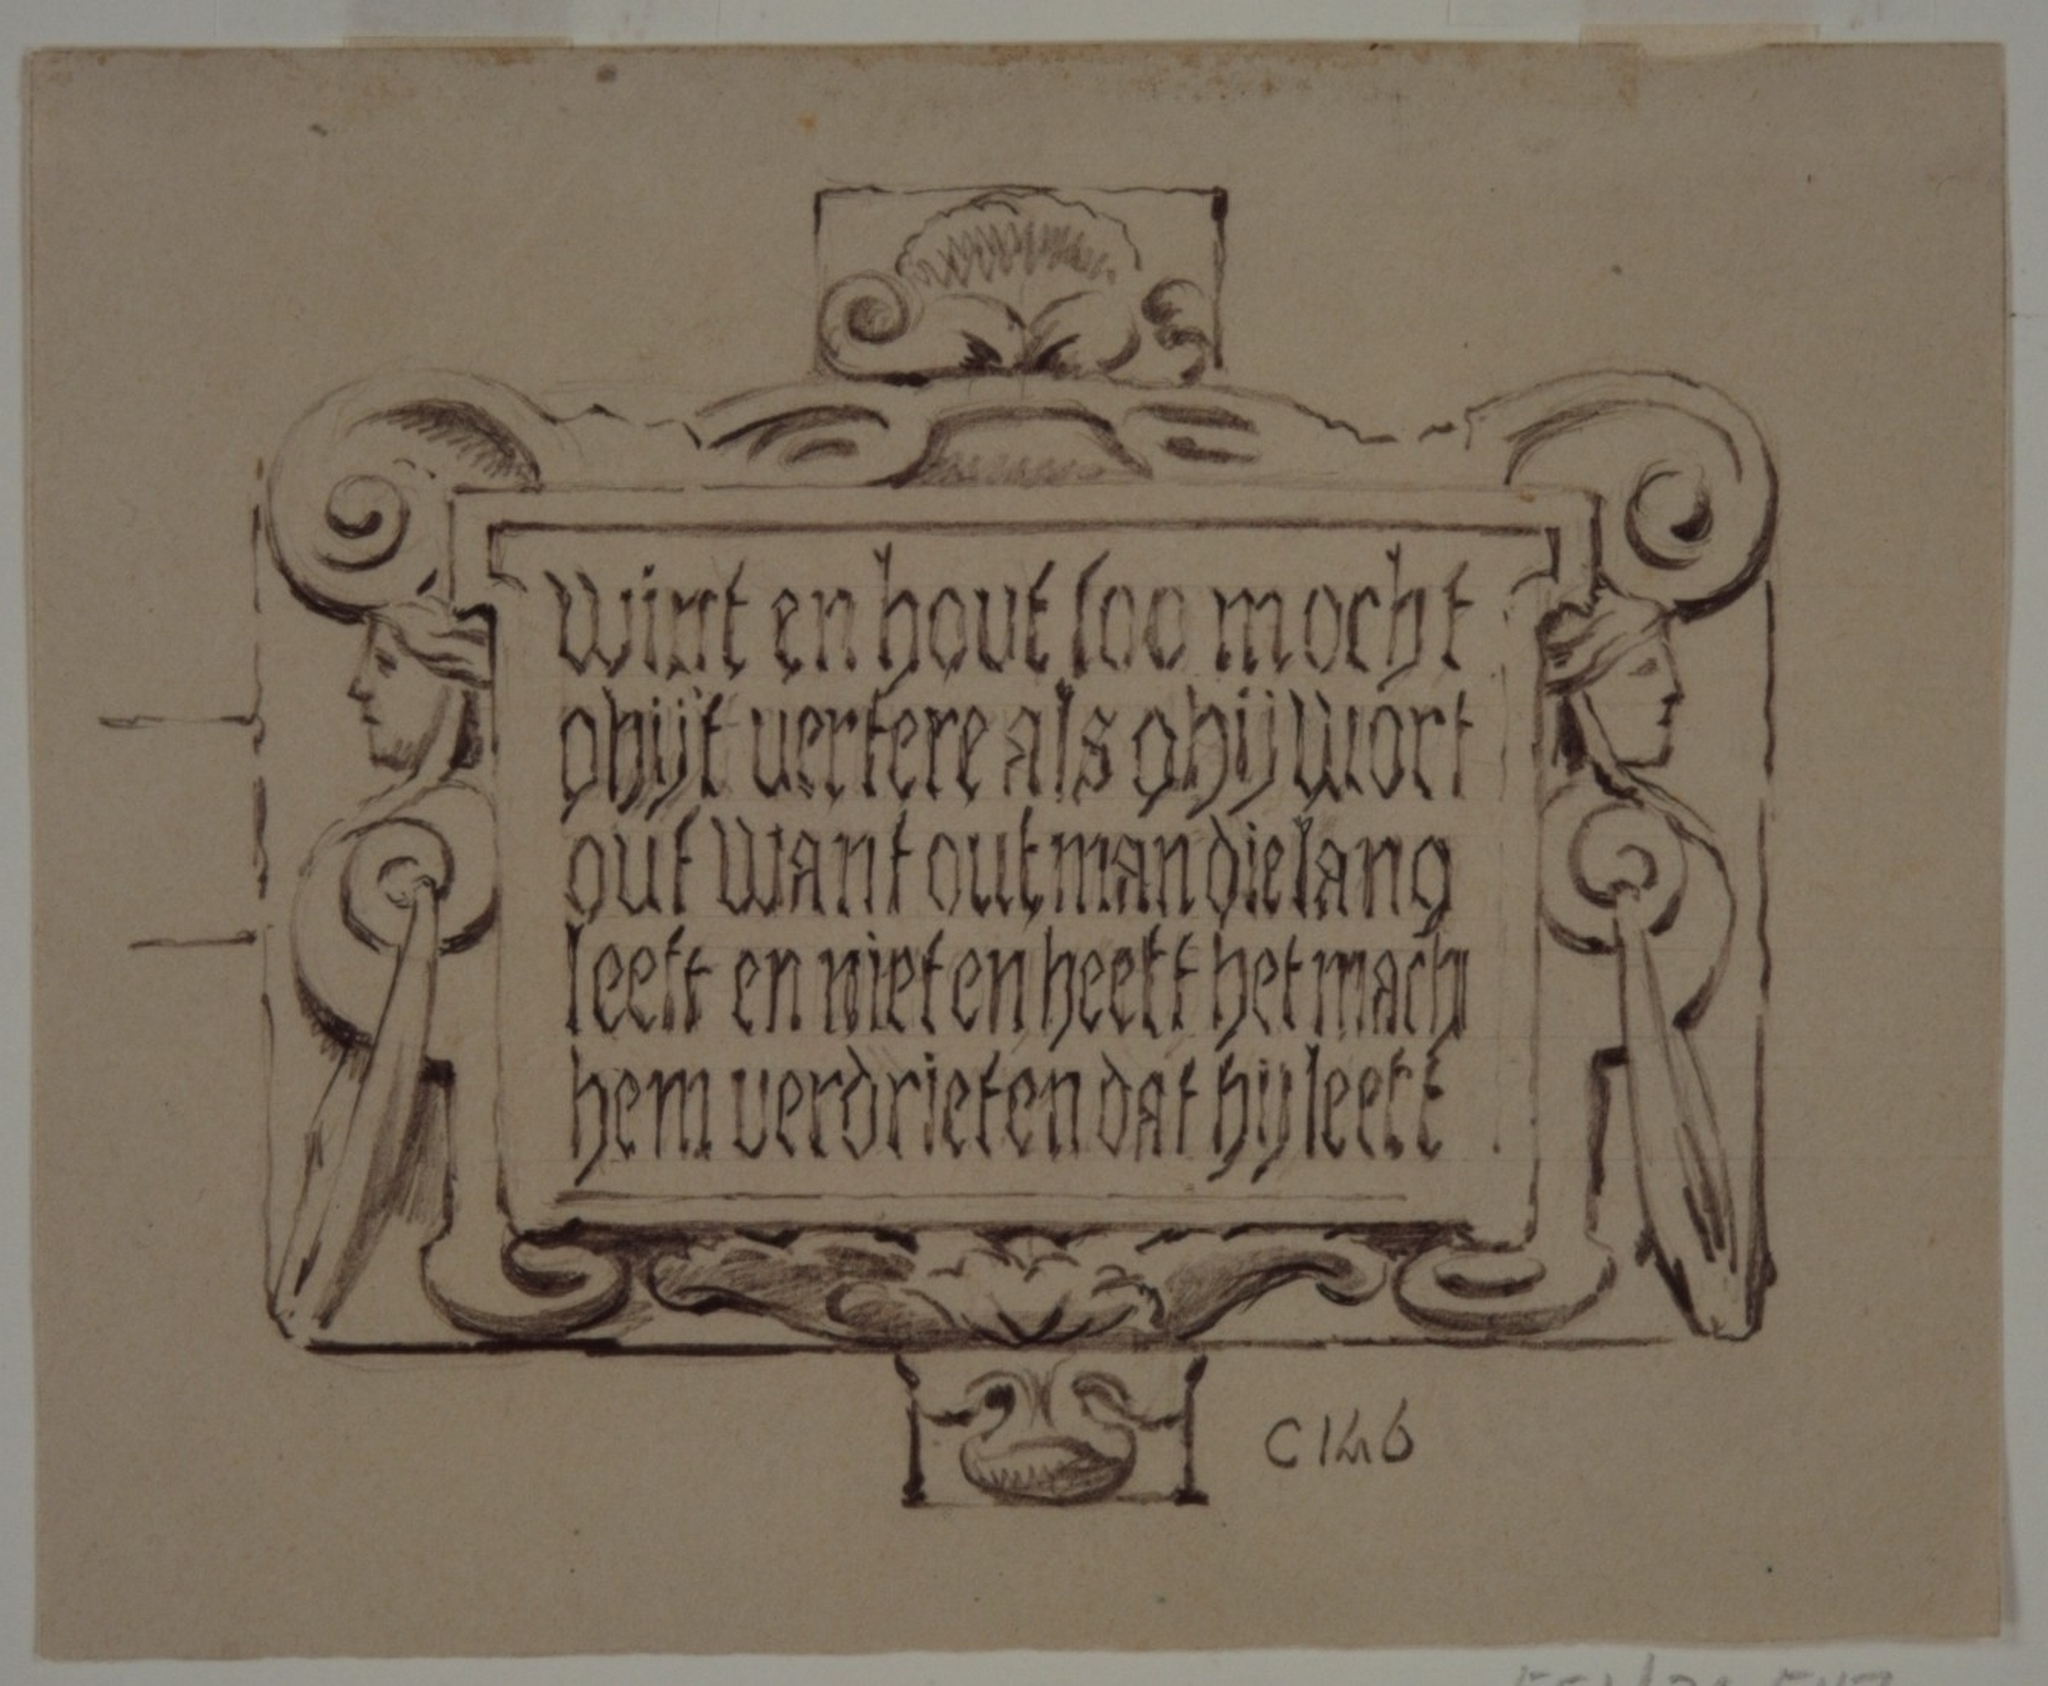 Wint en hout soo mocht
ghijt vertere als ghij Wort
out Want out man die lang
leeft en niet en heeft het mach
hem verdrieten dat hij leeft
C 146